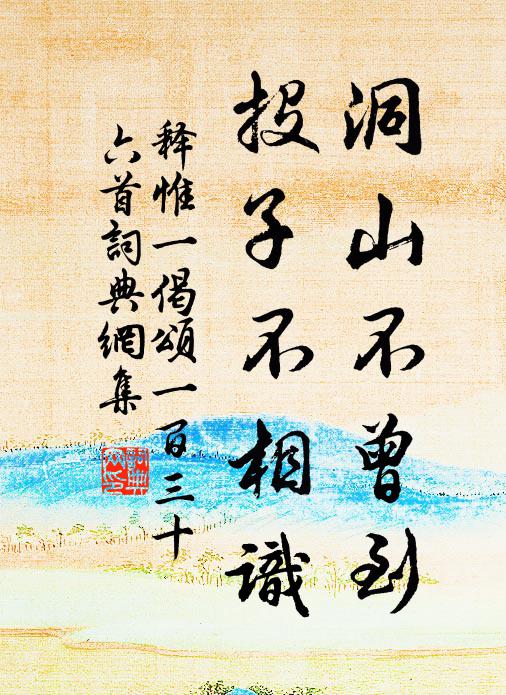 洞山不曾到
投子不相識
释惟一偈頌一百三十
六首詞典網集